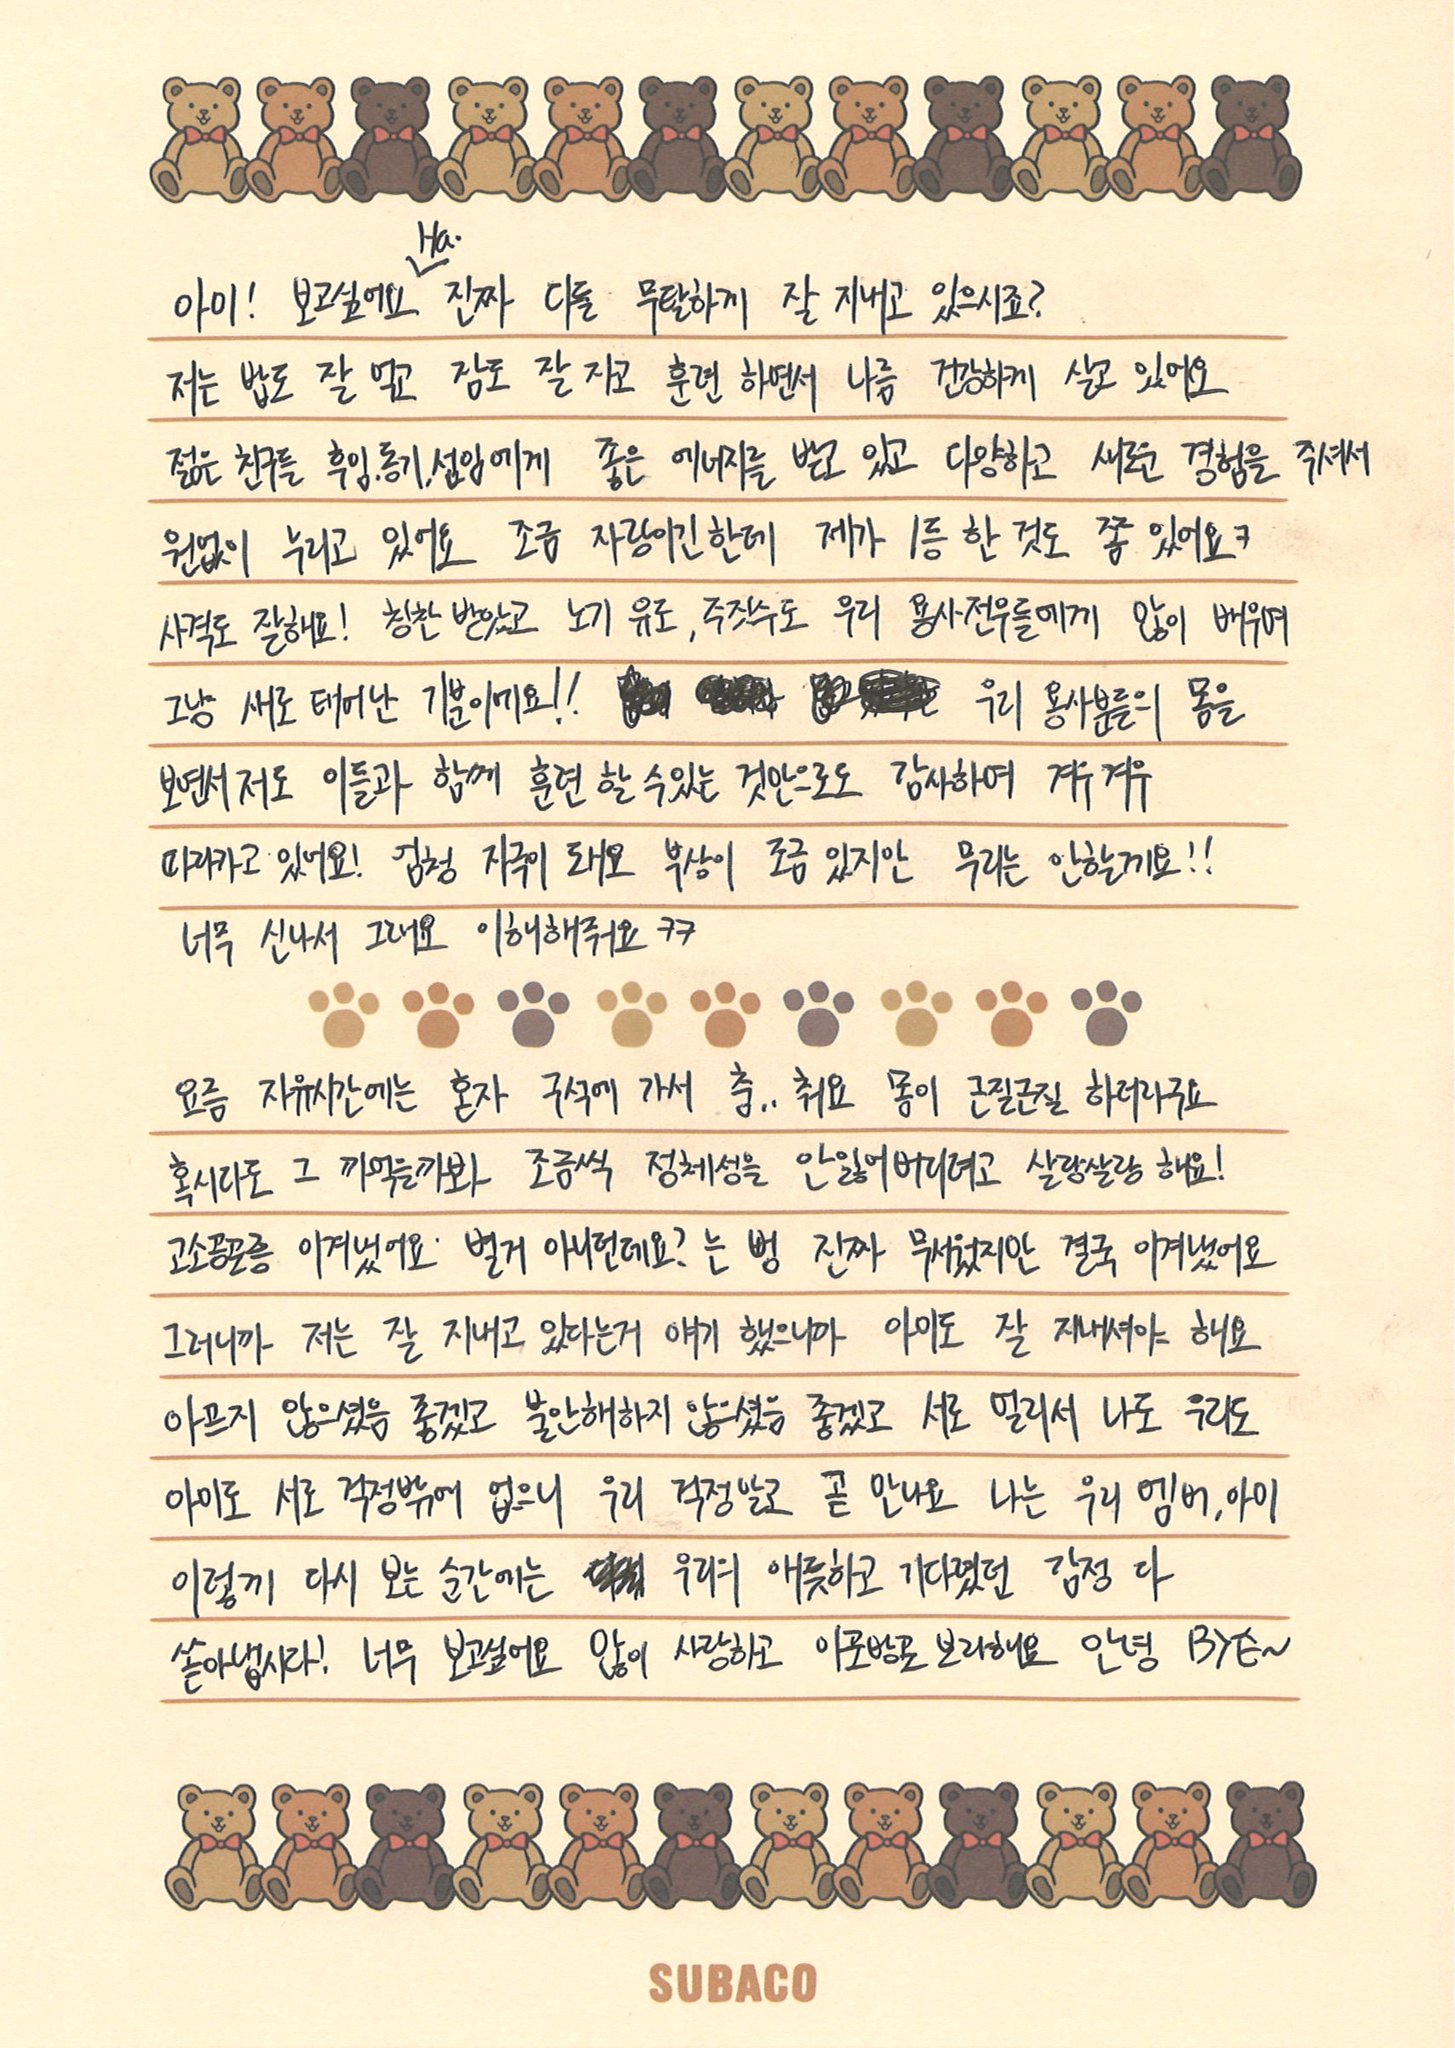 Ha.
아미! 보고싶어요 진짜 다들 무탈하게 잘 지내고 있으시죠?
저는 밥도 잘 먹고 잠도 잘 자고 훈련 하면서 나름 건강하게 살고 있어요
젊은 친구들 후임.동기.선임에게 좋은 에너지를 받고 있고 다양하고 새로운 경험을 주셔서
원없이 누리고 있어요 조금 자랑이긴한데 제가 1등 한 것도 쫌 있어요ㅋ
사격도 잘해요! 칭찬 받았고 노기 유도, 주짓수도 우리 용사.전우들에게 많이 배우며
그냥 새로 태어난 기분이에요!! 우리 용사분들의 몸을
보면서 저도 이들과 함께 훈련 할 수있는 것만으로도 감사하며 겨우겨우
따라가고 있어요! 엄청 자극이 돼요 부상이 조금 있지만 무리는 안할게요!!
너무 신나서 그래요 이해해줘요 ㅋㅋ
요즘 자유시간에는 혼자 구석에 가서 춤.. 춰요 몸이 근질근질 하더라구요
혹시라도 그 까먹을까봐 조금씩 정체성을 안잃어버리려고 살랑살랑 해요!
고소공포증 이겨냈어요 별거 아니던데요? 는 뻥 진짜 무서웠지만 결국 이겨냈어요
그러니까 저는 잘 지내고 있다는거 얘기 했으니까 아미도 잘 지내셔야 해요
아프지 않으셨음 좋겠고 불안해하지 않으셨음 좋겠고 서로 멀리서 나도 우리도
아미도 서로 걱정밖에 없으니 우리 걱정말고 곧 만나요 나는 우리 멤버, 아미
이렇게 다시 보는 순간에는 우리의 애틋하고 기다렸던 감정 다
쏟아냅시다! 너무 보고싶어요 많이 사랑하고 아포방포 보라해요 안녕 BYE~
SUBACO